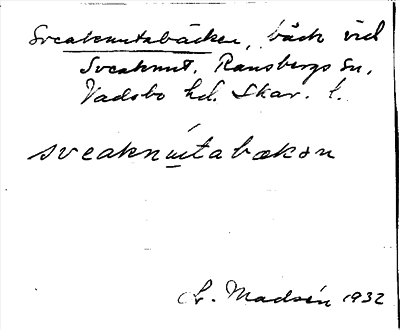 Sveaknutabäcken, bäck vid
Sveaknut, Ransbergs sn,
Vadsbo hd. Skar. l.
sveaknutabækən
Madsén 1932